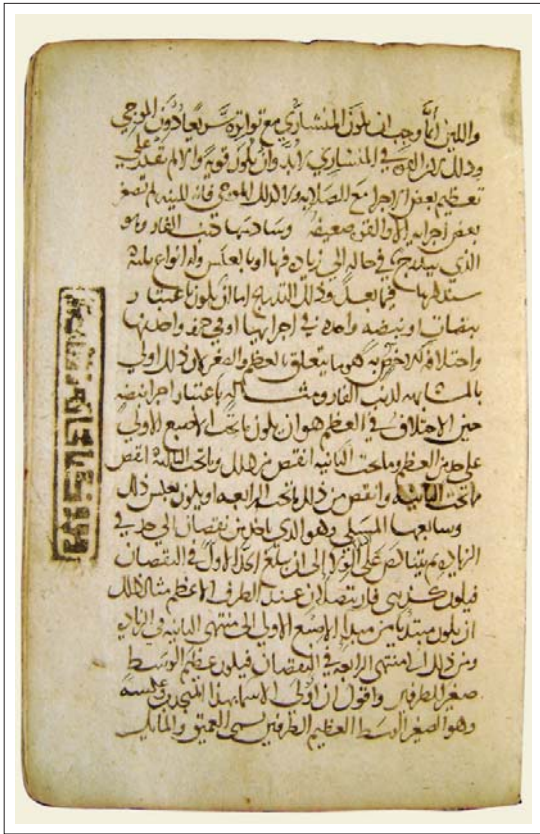 واللين انما وجب ان يكون المنشاري مع تواتره سريعا دون الموجي
وذلك لان في المنشاري لابد وان يكون قوية والا لم تقدر على
تعظيم بعض الاجزا مع الصلابة ولا كذلك الموجي فانه للينه لم تصغر
بعض اجزايه الا والقوة ضعيفة وسادسها ذنب الفار وهو
الذي يتدرج في حاله الى زيادة فيها او بالعكس وله انواع ثلثة
سنذكرها فيما بعد وذلك التدريج اما ان يكون باعتبار
نبضات او نبضة واحدة في اجزايها او في جزء واحد منها
واختلافه كله اخص به هو ما يتعلق بالعظم والصغر لان ذلك اولى
بالمشابهة لذنب الفار ومثاله باعتبار اجزا نبضة
حين الاختلاف في العظم هو ان يكون ما تحت الاصبع الاولى
على حد من العظم وما تحت الثانية انقص من ذلك وما تحت الثالثة انقص
مما تحت الثانية وانقص من ذلك ما تحت الرابعة او يكون بعكس ذلك
وسابعها المسلي وهو الذي ياخذ من نقصان الى حد في
الزيادة ثم يتناقص على الولا الى ان يبلغ الحد الاول في النقصان
فيكون كذنبي فار يتصلان عند الطرف الاعظم مثال ذلك
ان يكون مبتديا من مبدا الاصبع الاولى الى منتهى الثانية في الزيادة
ومن ذلك الى منتهى الرابعة في النقصان فيكون عظيم الوسط
صغير الطرفين واقول ان اولى الاسما بهذا وعكسه
وهو الصغير الوسط العظيم الطرفين يسمى العميق والمايل